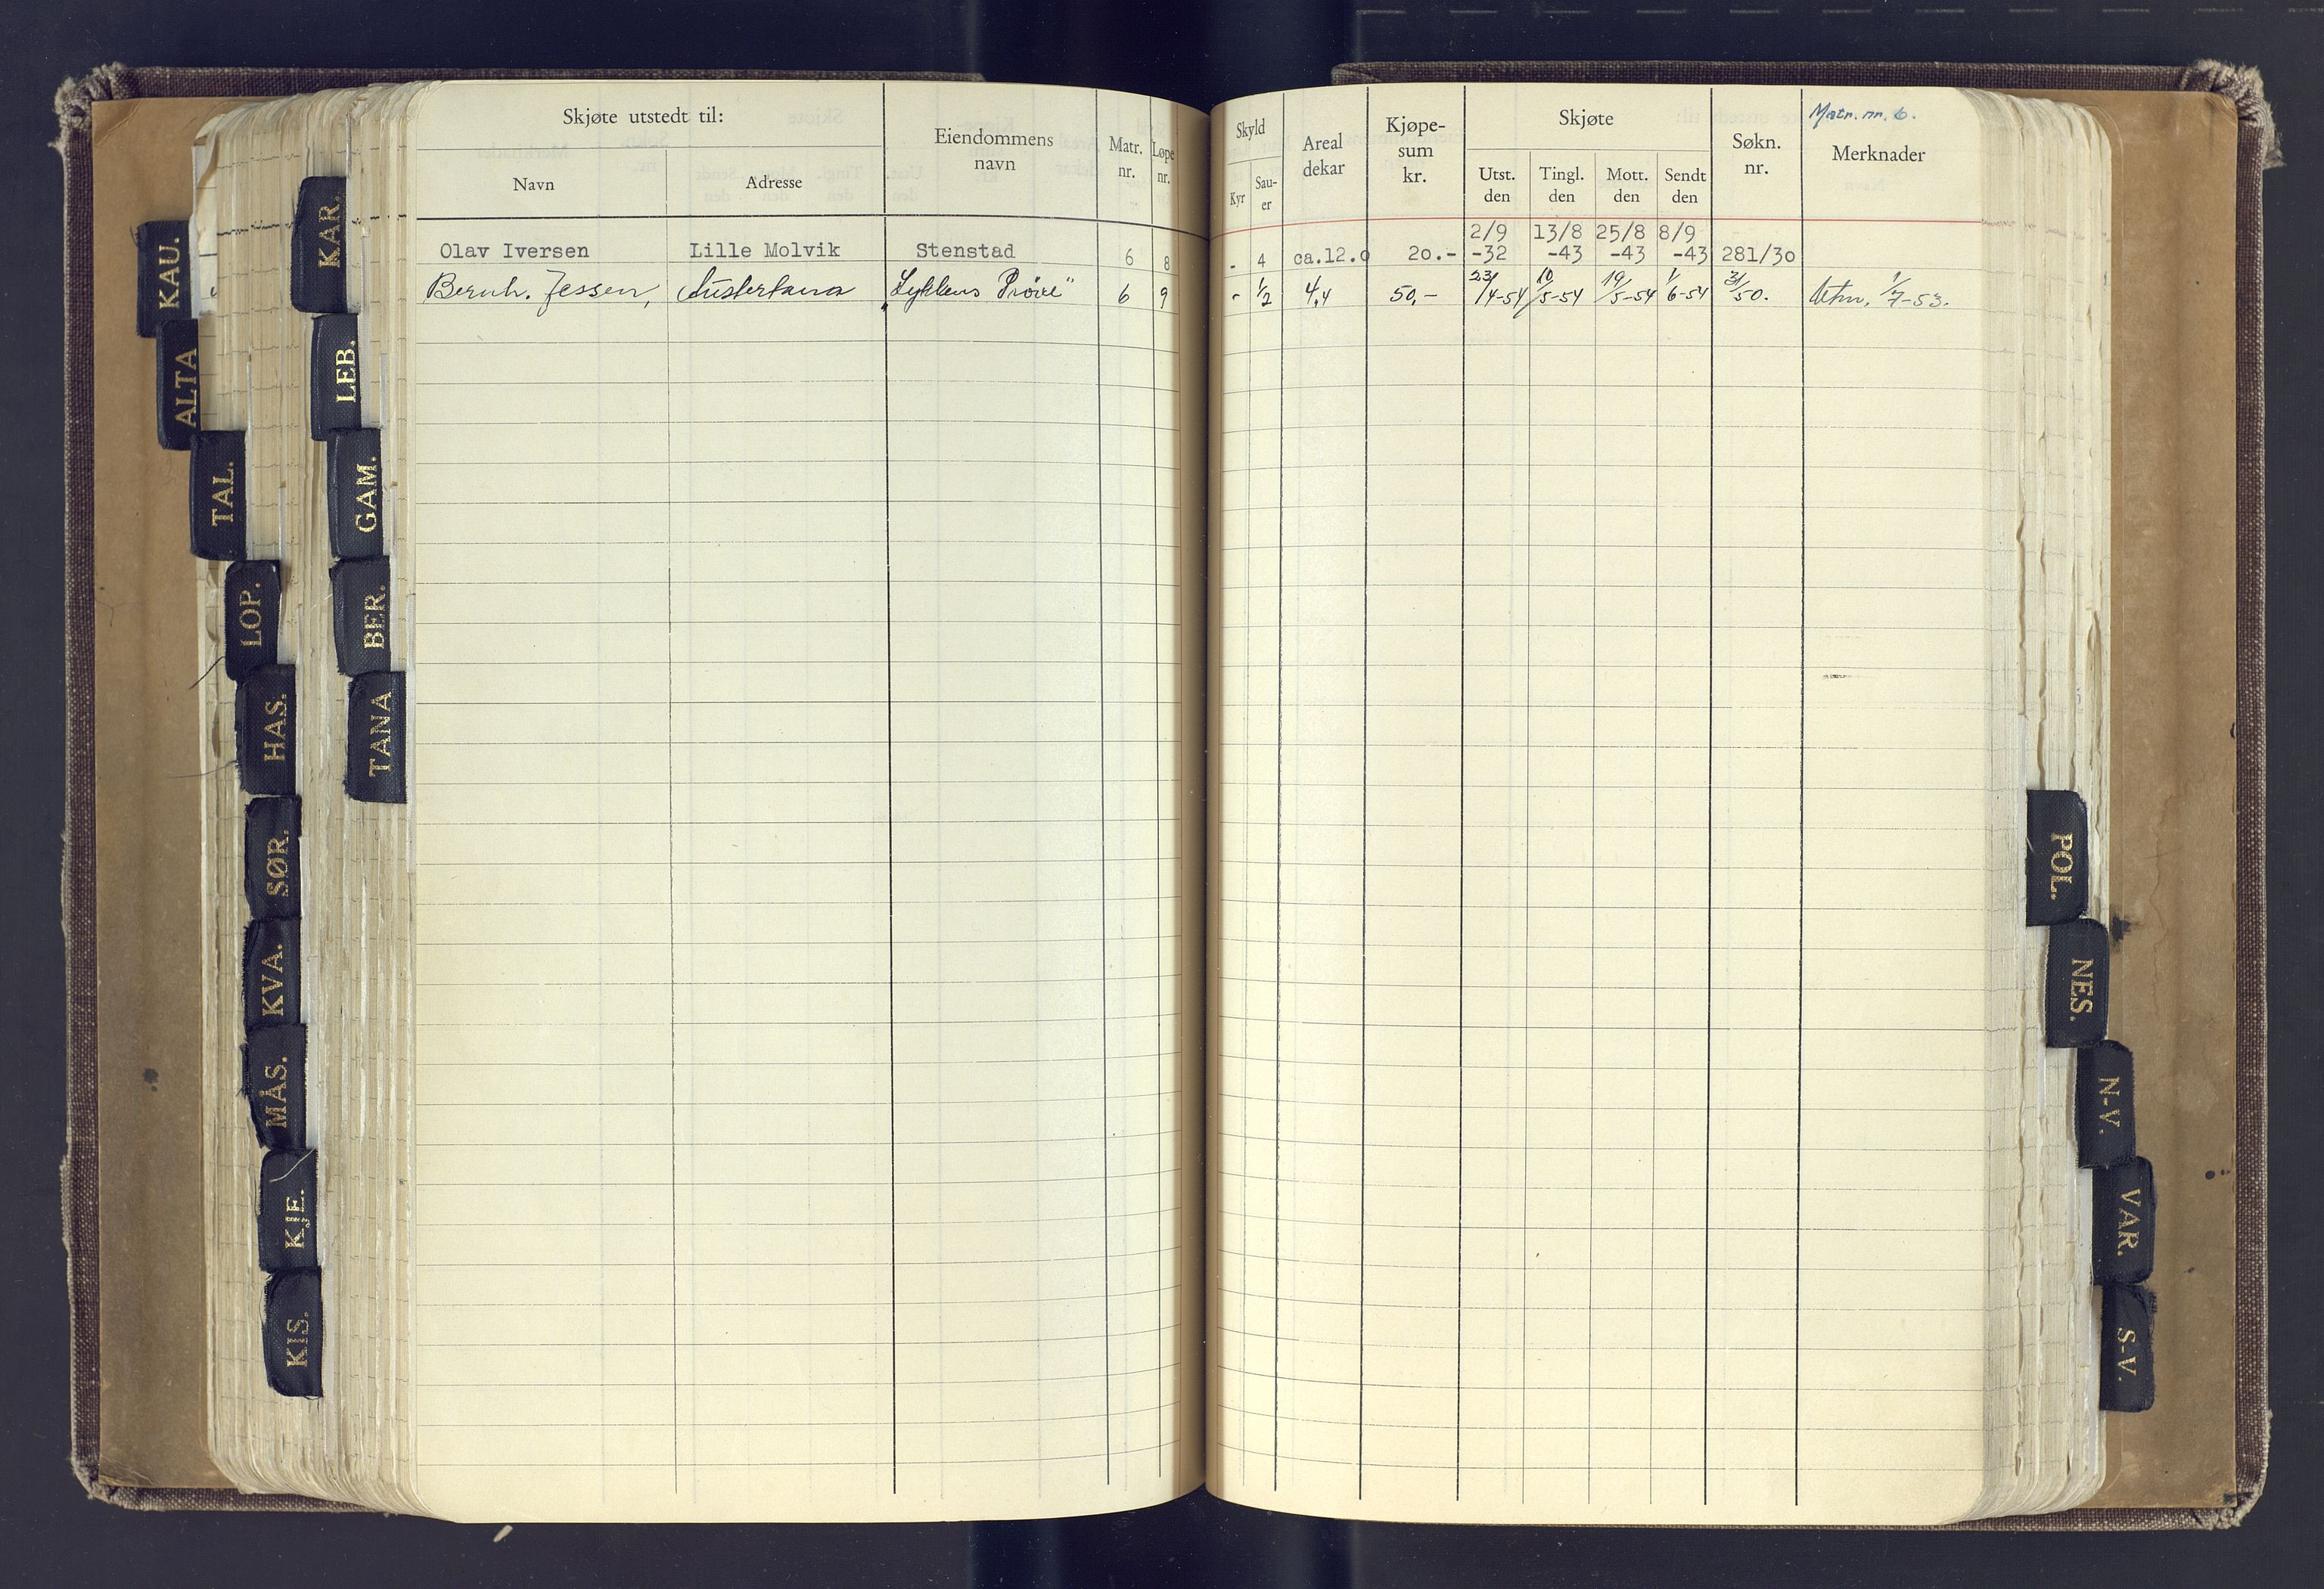 Skjøte utstedt til:
Navn
Adresse
Eiendommens
navn
Matr.
nr.
Løpe
nr.
Skyld
Kyr
Sau-
er
Areal
dekar
Kjøpe-
sum
kr.
Skjøte
Utst.
den
Tingl.
den
Mott.
den
Sendt
den
Søkn.
nr.
Matr. nr. 6.
Merknader
2/9 13/8 25/8 8/9
Olav Iversen Lille Molvik Stenstad 6 8 - 4 ca.12.0 20.- -32 -43 -43 -43 281/30
Bernh. Jessen, Austertana „Lykkens Pröve" 6 9 - 1/2 4,4 50,- 23/4-54 10/5-54 19/5-54 1/6-54 3/50. 1/7-53.
KAU.
ALTA
TAL.
LOP.
HAS.
SØR.
KVA.
MÅS.
KJE.
KIS.
KAR.
LEB.
GAM.
BER.
TANA
POL.
NES.
N-V.
VAR.
S-V.